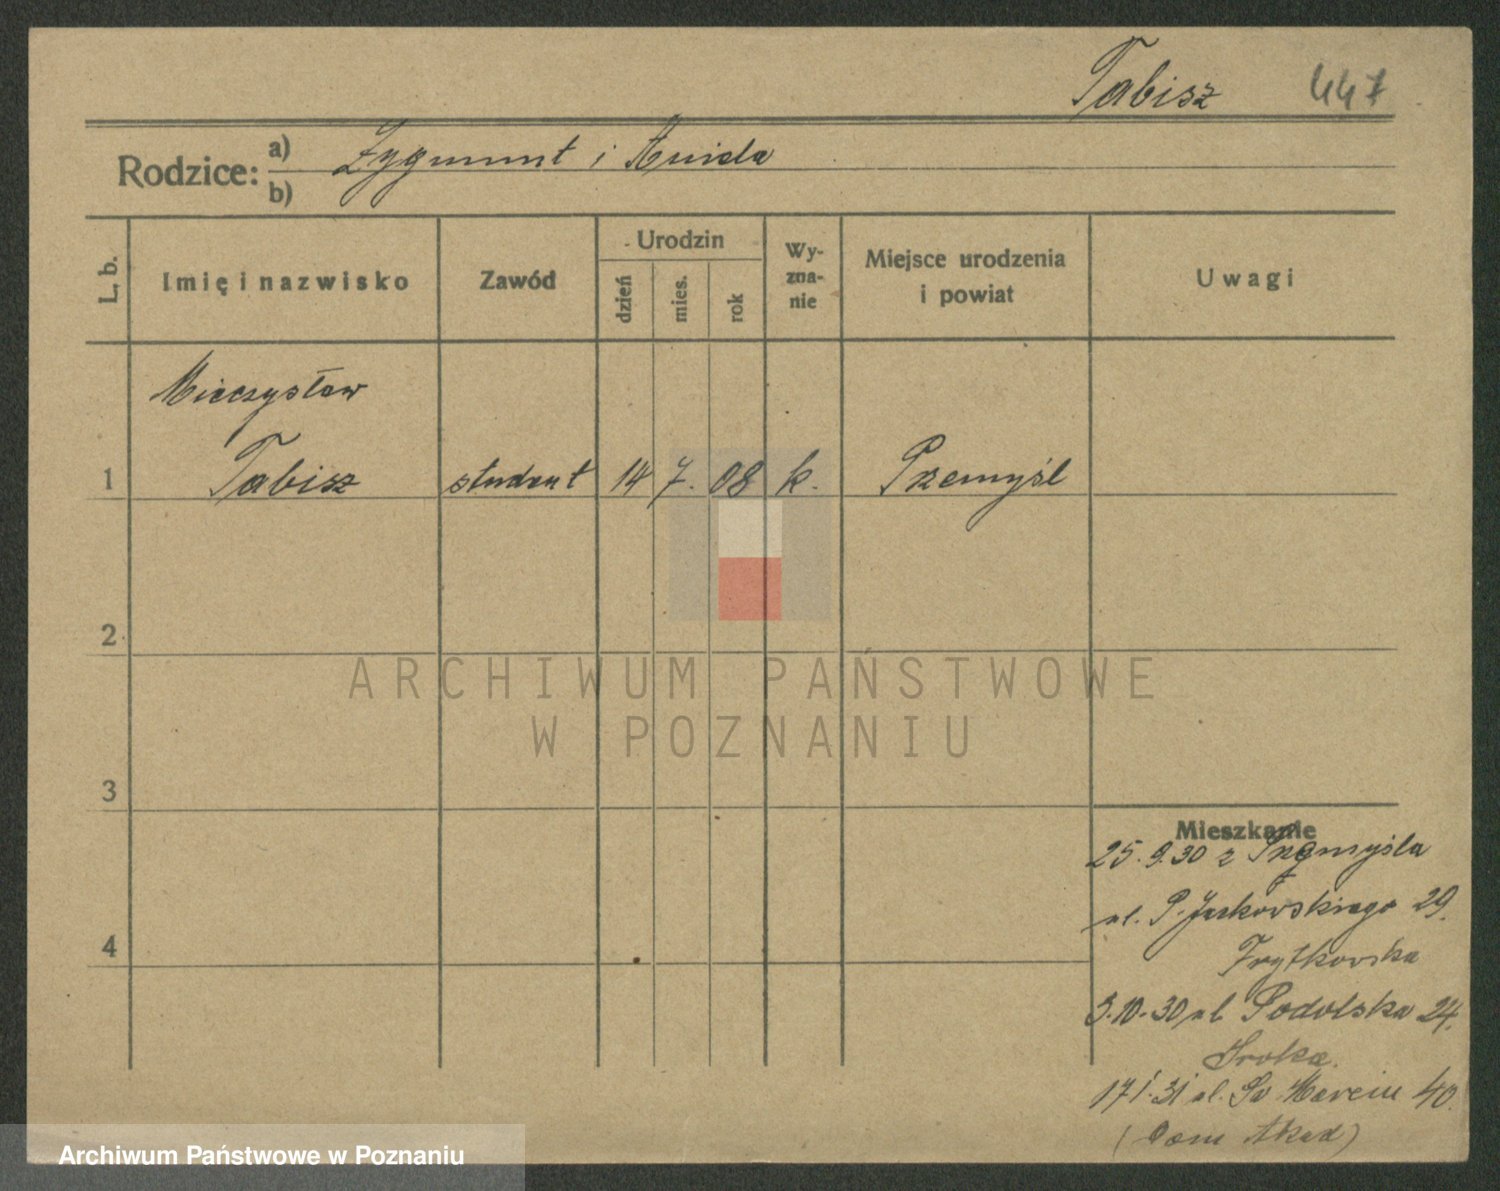 Tabisz 447
Rodzice: a) Zygmunt i
b)
L. b.
Imię i nazwisko
Zawód
Urodzin
dzień
mies.
rok
Wy-
zna-
nie
Miejsce urodzenia
i powiat
Uwagi
Mieczysław
1 Tabisz student 14 7. 08 k. Przemyśl
2
3
4
Mieszkanie
25.9.30 z Przemyśla
ul. P. 29.
3.10.30 ul. Podolska 24.
Sroka.
17 1.31 ul. Św Marcin 40.
(Dom Akad)
ARCHIWUM PAŃSTWOWE
W POZNANIU
Archiwum Państwowe w Poznaniu